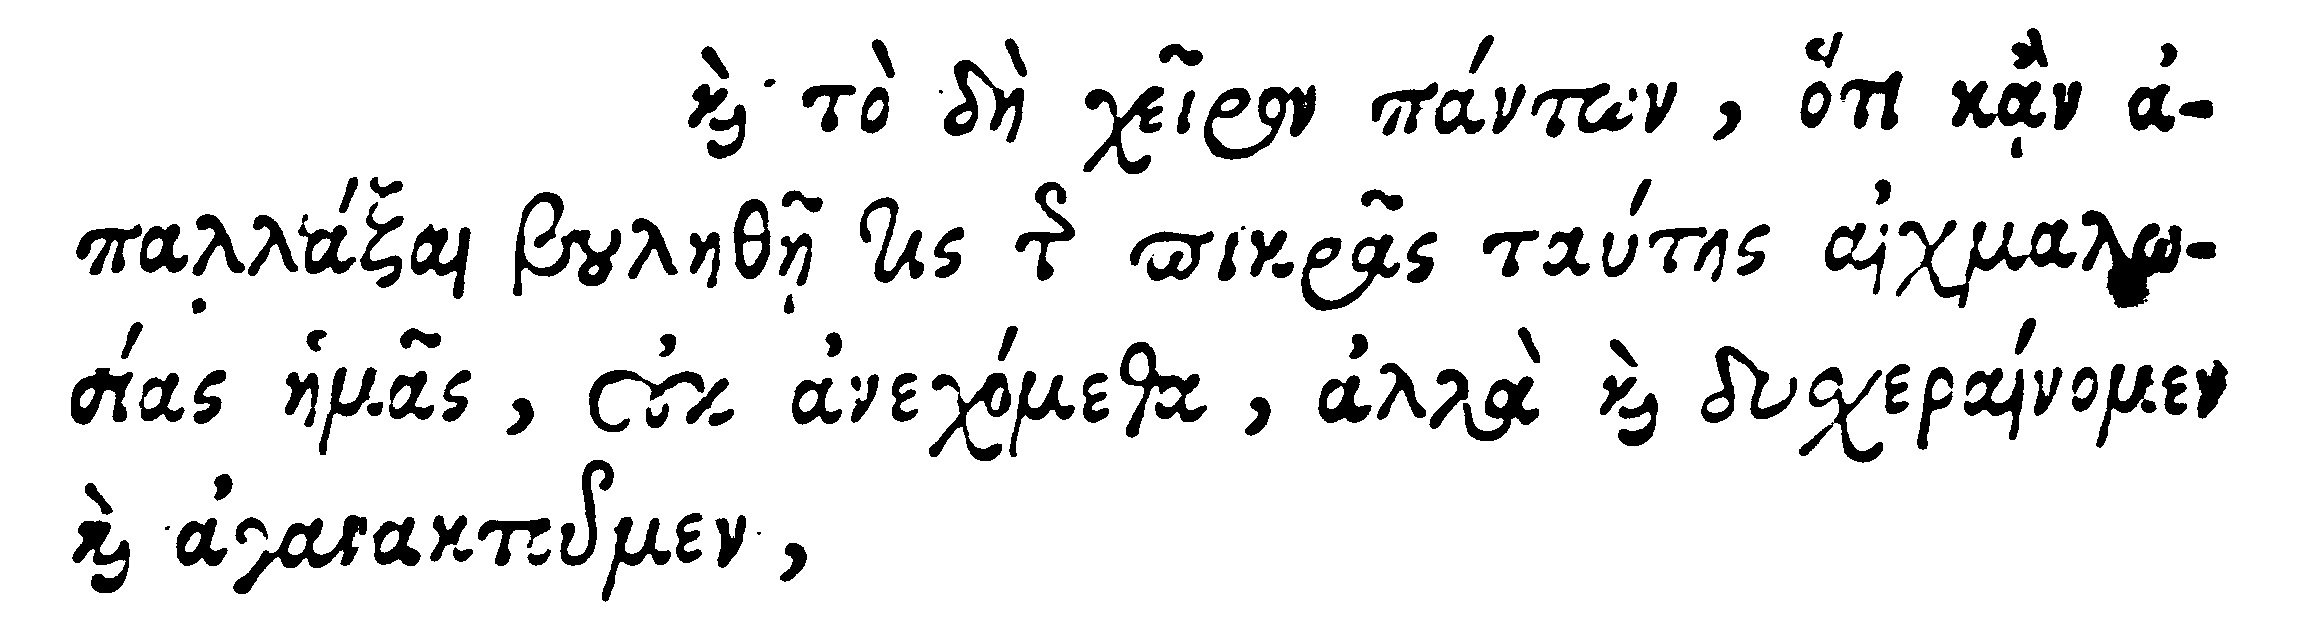 καὶ τὸ δὴ χεῖρον πάντων, ὅτι κᾂν ἀ-
παλλάξαι βουληθῇ τις τῆς πικρᾶς ταύτης αἰχμαλω-
σίας ἡμᾶς, οὐκ ἀνεχόμεθα, ἀλλὰ καὶ δυσχεραίνομεν
καὶ ἀγανακτοῦμεν,